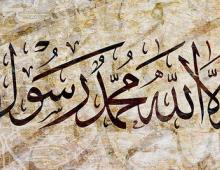 لا الله محمد رسول